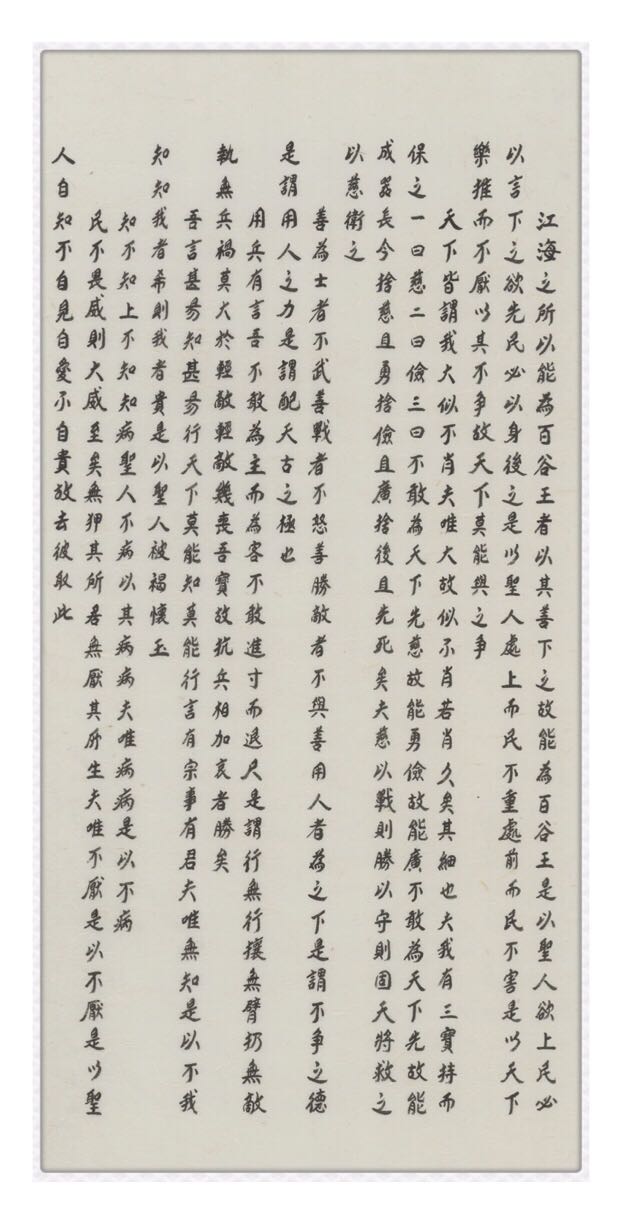 江海之所以能為百谷王者以其善下之故能為百谷王是以聖人欲上民必
以言下之欲先民必以身後之是以聖人處上而民不重處前而民不害是以天下
樂推而不厭以其不爭故天下莫能與之爭
天下皆謂我大似不肖夫唯大故似不肖若肖久矣其細也夫我有三寶持而
保之一曰慈二曰儉三曰不敢為天下先慈故能勇儉故能廣不敢為天下先故能
成器長今捨慈且勇捨儉且廣捨後且先死矣夫慈以戰則勝以守則固天將救之
以慈衛之
善為士者不武善戰者不怒善勝敵者不與善用人者為之下是謂不爭之德
是謂用人之力是謂配天古之極也
用兵有言吾不敢為主而為客不敢進寸而退尺是謂行無行攘無臂扔無敵
執無兵禍莫大於輕敵輕敵幾喪吾寶故抗兵相加哀者勝矣
吾言甚易知甚易行天下莫能知莫能行言有宗事有君夫唯無知是以不我
知知我者希則我者貴是以聖人被褐懷玉
知不知上不知知病聖人不病以其病病夫唯病病是以不病
民不畏威則大威至矣無狎其所居無厭其所生夫唯不厭是以不厭是以聖
人自知不自見自愛不自貴故去彼取此